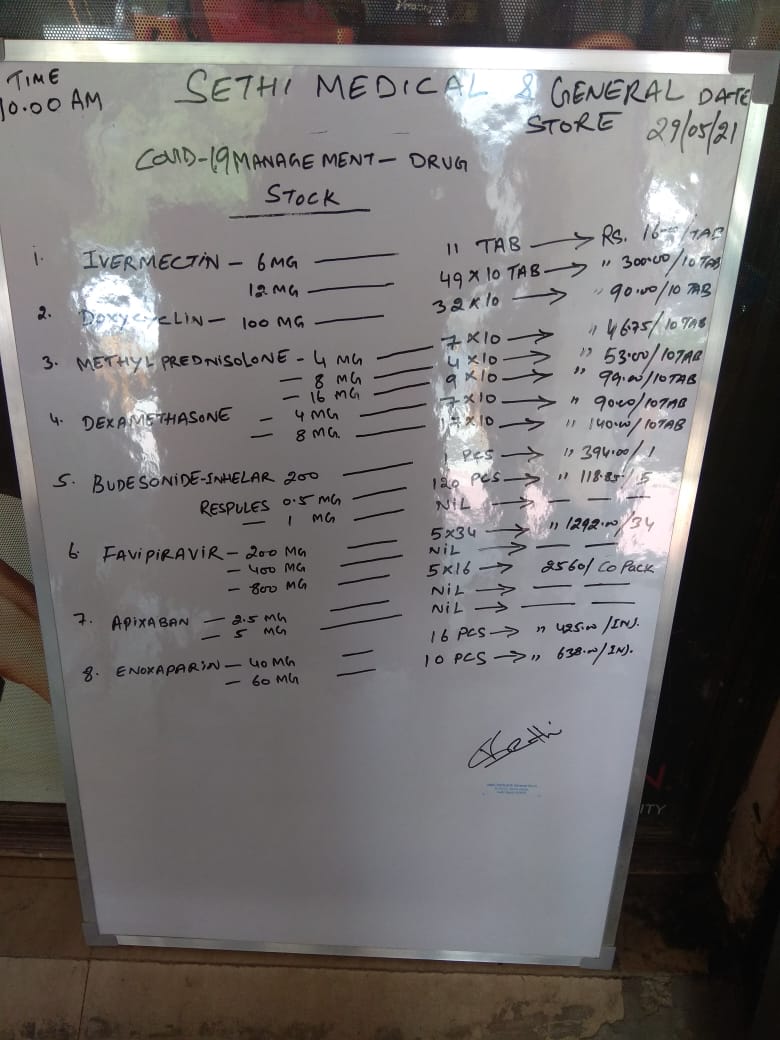 TIME
10.00 AM
SETHI MEDICAL & GENERAL STORE
DATE
29/05/21
COVID-19 MANAGEMENT - DRUG
STOCK
1. IVERMECTIN - 6 MG — 11 TAB → RS. /TAB
12 MG — 49 X 10 TAB → " 300.00/10 TAB
2. DOXYCYCLIN - 100 MG — 32 X 10 → " 90.00/10 TAB
3. METHYL PREDNISOLONE - 4 MG — 7 X 10 → " 46.75/10 TAB
- 8 MG — 4 X 10 → " 53.00/10 TAB
- 16 MG — 9 X 10 → " 99.00/10 TAB
4. DEXAMETHASONE - 4 MG — 7 X 10 → " /10 TAB
- 8 MG. — X 10 → " 140.00/10 TAB
5. BUDESONIDE-INHELAR 200 — 1 PCS → " 394.00/1
RESPULES 0.5 MG — 120 PCS → " 118.85/5
- 1 MG — NIL → — —
6. FAVIPIRAVIR - 200 MG — 5X34 → " 1292.00/34
- 400 MG — NIL → — —
- 800 MG — 5X16 → 2560/ CO PACK
7. APIXABAN - 2.5 MG — NIL → — —
- 5 MG — NIL → — —
8. ENOXAPARIN - 40 MG — 16 PCS → " 425.00/INJ.
- 60 MG — 10 PCS → " 638.00/INJ.